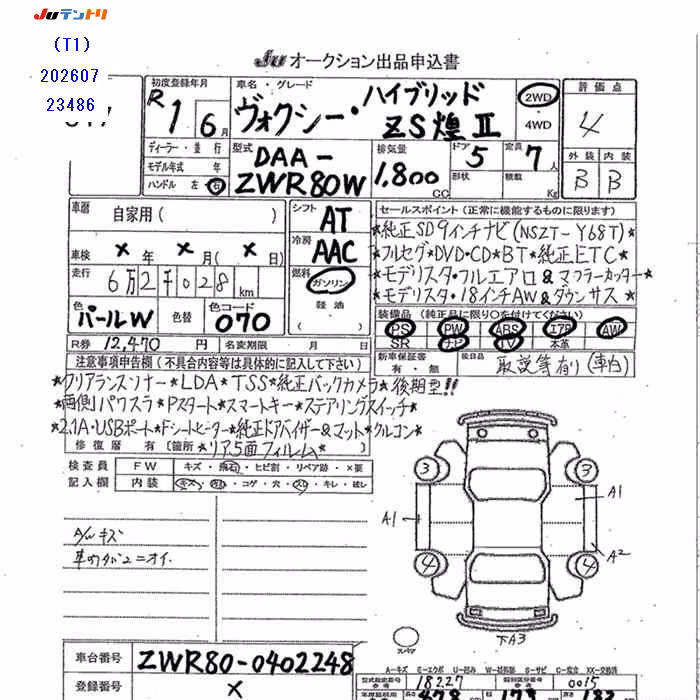 Juテントリ
(T1)
202607
23486
Ju オークション出品申込書
初度登録年月
R1 6月
車名・グレード
ヴォクシー・ハイブリッド
ZS煌Ⅱ
2WD
4WD
評価点
4
外装 内装
B B
ディーラー・並行
モデル年式 年
ハンドル 左 右
型式
DAA-
ZWR80W
排気量
1,800
cc
ドア
5
形状
定員
7人
積載
Kg
車歴
自家用( )
車検 × 年 × 月( × )日
走行 6万2千028 km
色
パールW
色替
色コード
070
シフト
AT
冷房
AAC
燃料
ガソリン
軽油
( )
セールスポイント(正常に機能するものに限ります)
★純正SD9インチナビ(NSZT-Y68T)★
★フルセグ★DVD・CD★BT★純正ETC★
★モデリスタ・フルエアロ&マフラーカッター★
★モデリスタ・18インチAW&ダウンサス★
装備品(純正品に限り○を付けてください)
PS PW ABS エアB AW
SR ナビ TV 本革
R券 12,470 円
名変期限 月 日
新車保証書
有・無
後日品
取説等有り(車内)
注意事項申告欄(不具合内容等は具体的に記入して下さい)
★クリアランスソナー★LDA★TSS★純正バックカメラ★後期型!!
★両側パワスラ★Pスタート★スマートキー★ステアリングスイッチ★
★2.1A・USBポート★Fシートヒーター★純正ドアバイザー&マット★クルコン★
修復歴 有〔箇所 ★リア5面フィルム★
検査員
記入欄
FW キズ・飛石・ヒビ割・リペア跡・×要
内装 キズ・汚れ・コゲ・穴・スレ・キレ・破レ
A/Wキズ
車内タバコニオイ.
3 3
A1
A1
A2
4 4
スペア
下A3
車台番号 ZWR80-0402248
登録番号 ×
A-キズ E-エクボ U-凹み W-補修跡 S-サビ C-腐食 XX-交換済
型式指定番号 18227
類別区分番号 0015